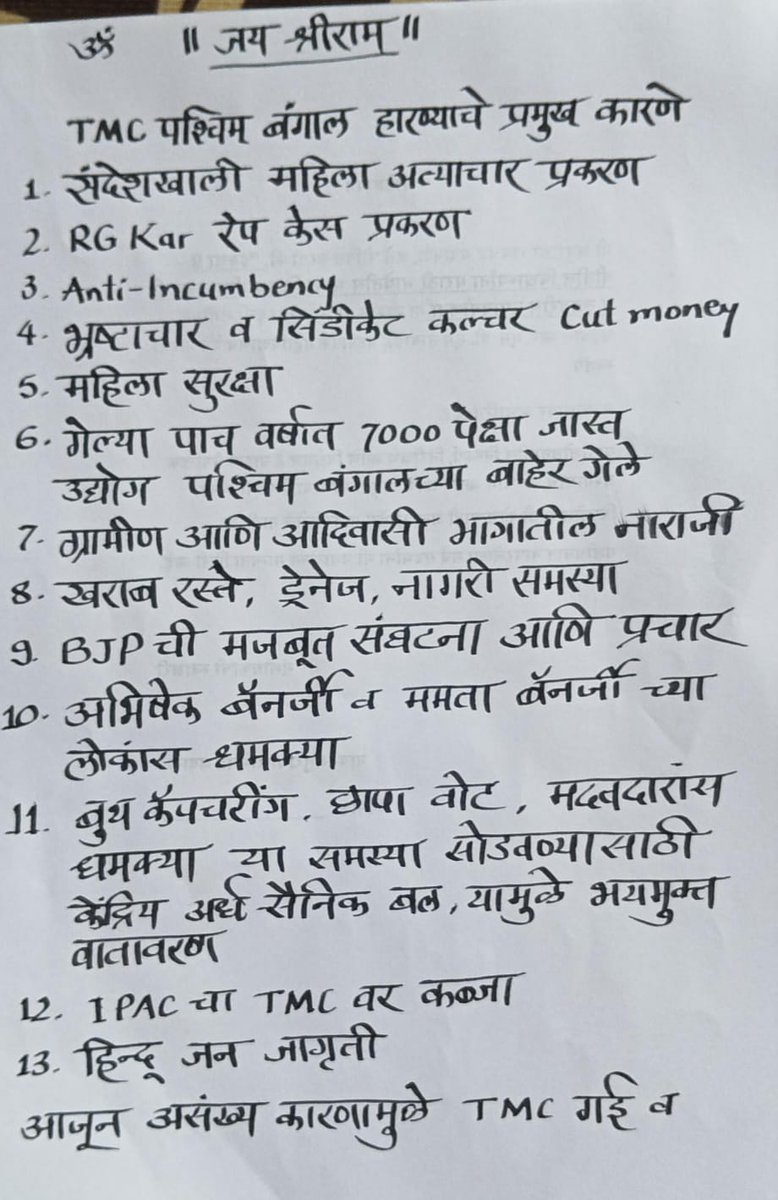 ॐ ॥ जय श्रीराम ॥
TMC पश्चिम बंगाल हारण्याचे प्रमुख कारणे
1. संदेशखाली महिला अत्याचार प्रकरण
2. RG Kar रेप केस प्रकरण
3. Anti-Incumbency
4. भ्रष्टाचार व सिंडीकेट कल्चर Cut money
5. महिला सुरक्षा
6. गेल्या पाच वर्षात 7000 पेक्षा जास्त
उद्योग पश्चिम बंगालच्या बाहेर गेले
7. ग्रामीण आणि आदिवासी भागातील नाराजी
8. खराब रस्ते, ड्रेनेज, नागरी समस्या
9. BJP ची मजबूत संघटना आणि प्रचार
10. अभिषेक बॅनर्जी व ममता बॅनर्जी च्या
लोकांस धमक्या
11. बुथ कॅपचरींग, छापा वोट, मदतदारांस
धमक्या या समस्या सोडवण्यासाठी
केंद्रिय अर्ध सैनिक बल, यामुळे भयमुक्त
वातावरण
12. IPAC चा TMC वर कब्जा
13. हिन्दू जन जागृती
आजून असंख्य कारणामुळे TMC गई व